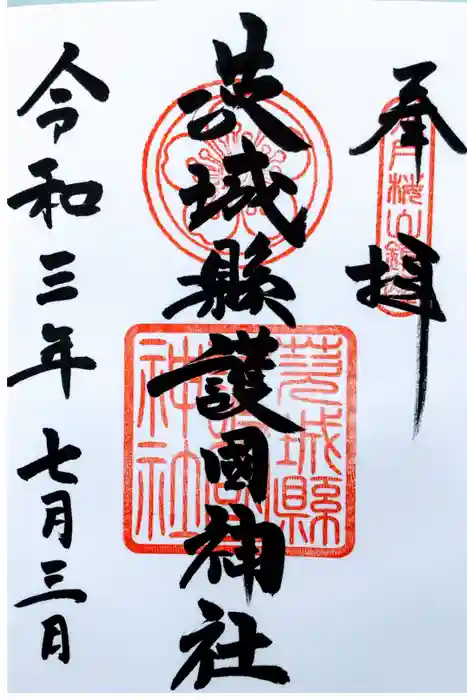 奉拝
茨城縣護國神社
茨城縣
神社
令和三年七月三日